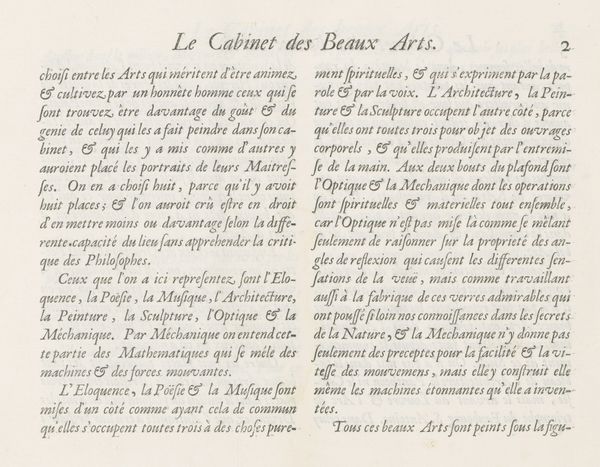 Le Cabinet des Beaux Arts. 2
choiſi entre les Arts qui méritent d'être animez
& cultivez par un honnête homme ceux qui ſe
ſont trouvez être davantage du goût & du
genie de celuy qui les a fait peindre dans ſon ca-
binet, & qui les y a mis comme d'autres y
auroient placé les portraits de leurs Maitreſ-
ſes. On en a choiſi huit, parce qu'il y avoit
huit places; & l'on auroit crû eſtre en droit
d'en mettre moins ou davantage ſelon la diffe-
rente capacité du lieu ſans apprehender la criti-
que des Philoſophes.
Ceux que l'on a ici repreſentez ſont l'Elo-
quence, la Poëſie, la Muſique, l'Architecture,
la Peinture, la Sculpture, l'Optique & la
Méchanique. Par Méchanique on entend cet-
te partie des Mathematiques qui ſe mêle des
machines & des forces mouvantes.
L'Eloquence, la Poëſie & la Muſique ſont
miſes d'un côté comme ayant cela de commun
qu'elles s'occupent toutes trois à des choſes pure-
ment ſpirituelles, & qui s'expriment par la pa-
role & par la voix. L'Architecture, la Pein-
ture & la Sculpture occupent l'autre côté, parce
qu'elles ont toutes trois pour objet des ouvrages
corporels, & qu'elles produiſent par l'entremi-
ſe de la main. Aux deux bouts du plafond ſont
l'Optique & la Mechanique dont les operations
ſont ſpirituelles & materielles tout enſemble,
car l'Optique n'eſt pas miſe là comme ſe mêlant
ſeulement de raiſonner ſur la propriété des an-
gles de reflexion qui cauſent les differentes ſen-
ſations de la veuë, mais comme travaillant
auſſi à la fabrique de ces verres admirables qui
ont pouſſé ſi loin nos connoiſſances dans les ſecrets
de la Nature, & la Mechanique n'y donne pas
ſeulement des preceptes pour la facilité & la vi-
teſſe des mouvemens, mais elle y conſtruit elle
même les machines étonnantes qu'elle a inven-
tées.
Tous ces beaux Arts ſont peints ſous la figu-